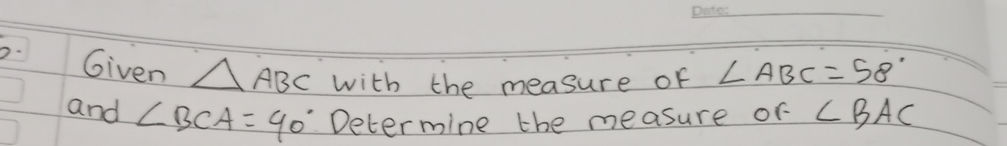 Date:
5. Given △ABC with the measure of ∠ABC = 58°
and ∠BCA = 90° Determine the measure of ∠BAC